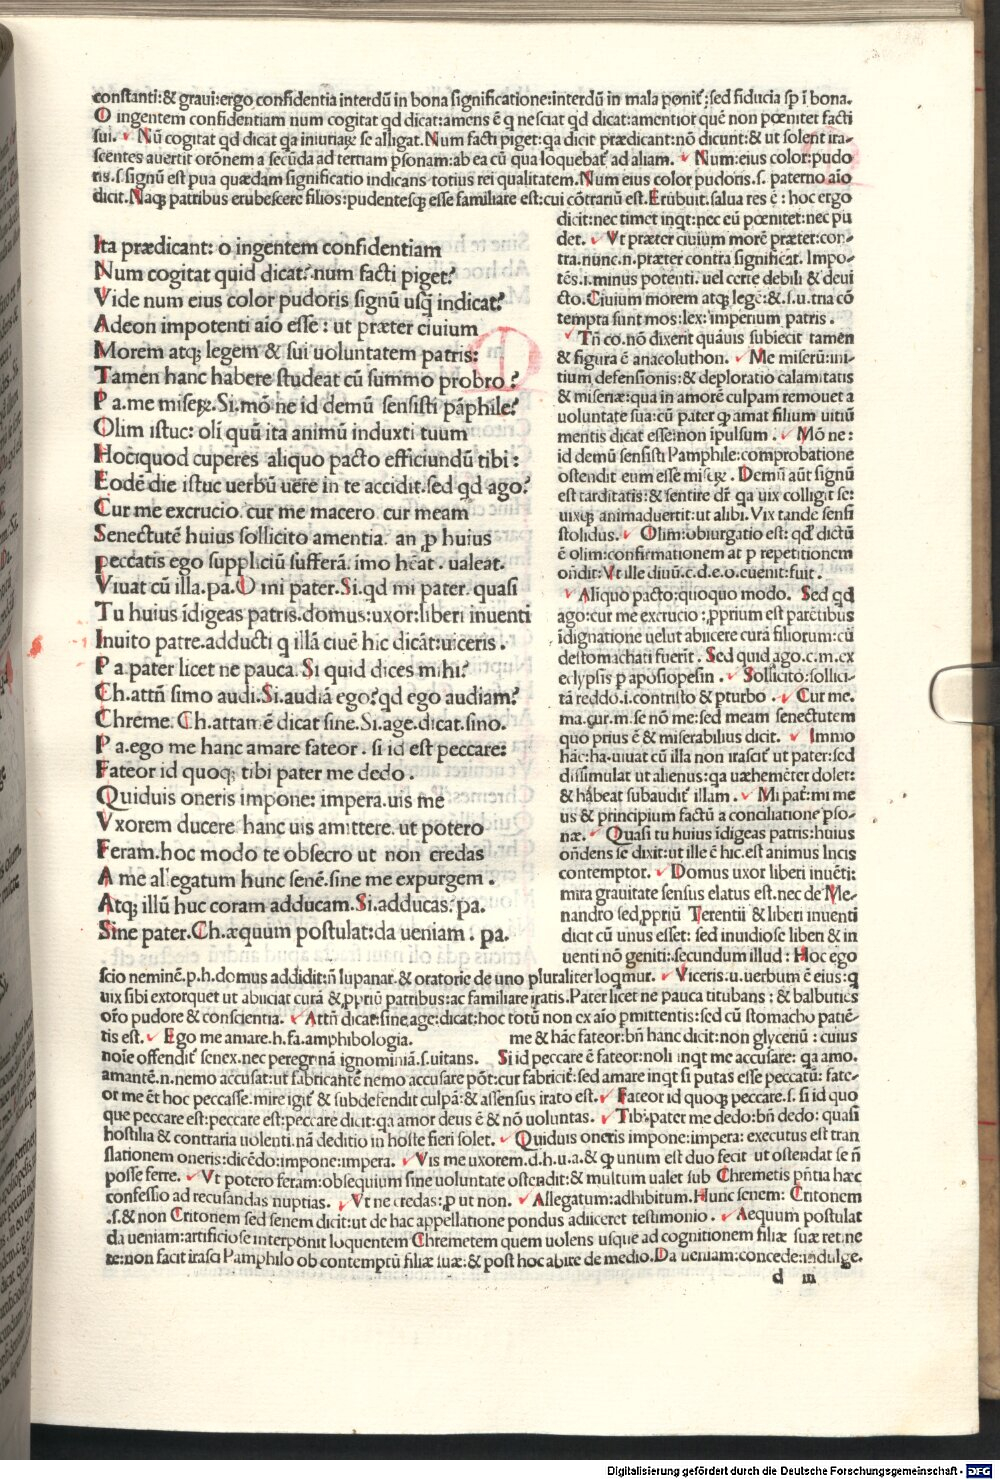 constanti:& graui:ergo confidentia interdū in bona significatione:interdū in mala ponit̄:sed fiducia sp ī bona.
O ingentem confidentiam num cogitat qd dicat:amens ē q nesciat qd dicat:amentior quē non pœnitet facti
sui. Nū cogitat qd dicat qa iniuriaꝝ se alligat. Num facti piget:qa dicit prædicant:nō dicunt:& ut solent ira-
scentes auertit orōnem a secūda ad tertiam psonam:ab ea cū qua loquebat̄ ad aliam. Num:eius color:pudo
ris.s.signū est pua quædam significatio indicans totius rei qualitatem.Num eius color pudoris.s. paterno aīo
dicit.Naqꝫ patribus erubescere filios:pudentesqꝫ esse familiare est:cui cōtrariū est.Erubuit.salua res ē : hoc ergo
Ita prædicant: o ingentem confidentiam
Num cogitat quid dicat?num facti piget?
Vide num eius color pudoris signū usqꝫ indicat?
Adeon impotenti aīo esse : ut præter ciuium
Morem atqꝫ legem & sui uoluntatem patris:
Tamen hanc habere studeat cū summo probro ?
P a.me miseꝝ.Si.mō ne id demū sensisti pāphile?
Olim istuc: oli quū ita animū induxti tuum
Hociquod cuperes aliquo pacto efficiundū tibi :
Eodē die istuc uerbū uere in te accidit.sed qd ago?
Cur me excrucio. cur me macero cur meam
Senectutē huius sollicito amentia. an ꝓ huius
peccatis ego suppliciū sufferā. imo heat . ualeat.
Viuat cū illa.pa.O mi pater.Si.qd mi pater. quasi
Tu huius idigeas patris.domus:uxor:liberi inuenti
Inuito patre.adducti q illā ciuē hic dicāt:uiceris .
P a.pater licet ne pauca. Si quid dices mihi?
Ch.attn̄ simo audi.Si.audiā ego?qd ego audiam?
Chreme. Ch.attan ē dicat sine.Si.age.dicat.sino.
P a.ego me hanc amare fateor . si id est peccare:
Fateor id quoqꝫ tibi pater me dedo .
Quiduis oneris impone: impera.uis me
Vxorem ducere hanc uis amittere. ut potero
Feram.hoc modo te obsecro ut non credas
A me allegatum hunc senē.sine me expurgem .
Atqꝫ illū huc coram adducam.Si.adducas? pa.
Sine pater.Ch.æquum postulat:da ueniam . pa.
dicit:nec timet inqt:nec eū pœnitet:nec pu
det. Vt præter ciuium morē præter:con-
tra.nunc.n.præter contra significat. Impo-
tēs.i.minus potenti. uel certe debili & deui
cto.Ciuium morem atqꝫ legē:&.s.u.tria cō
tempta sunt mos:lex:imperium patris .
Tn̄ co.nō dixerit quāuis subiecit tamen
& figura ē anacoluthon. Me miserū:ini-
tium defensionis:& deploratio calamitatis
& miseriæ:qua in amorē culpam remouet a
uoluntate sua:cū pater qꝫ amat filium uitiū
mentis dicat esse:non ipulsum . Mō ne :
id demū sensisti Pamphile:comprobatione
ostendit eum esse miseꝝ . Demū aūt signū
est tarditatis:& sentire dr̄ qa uix colligit se:
uixqꝫ animaduertit:ut alibi. Vix tande sensi
stolidus. Olim:obiurgatio est: qd dictū
ē olim:confirmationem at p repetitionem
ondit:Vt ille diuū.c.d.e.o.euenit:fuit .
Aliquo pacto:quoquo modo. Sed qd
ago:cur me excrucio :ꝓprium est parētibus
idignatione uelut abiicere curā filiorum:cū
destomachati fuerit . Sed quid ago.c.m.ex
eclypsis p aposiopesin . Sollicito:sollici-
tā reddo.i.contristo & pturbo . Cur me.
ma.cur.m.se nō me:sed meam senectutem
quo prius ē & miserabilius dicit. Immo
hāc:ha.uiuat cū illa non irascit ut pater:sed
dissimulat ut alienus:qa uæhemēter dolet:
& hābeat subaudit illam . Mi pat̄:mi me
us & principium factū a conciliatione pso-
næ. Quasi tu huius īdigeas patris:huius
ondens se dixit:ut ille ē hic.est animus lncis
contemptor. Domus uxor liberi inuēti:
mira grauitate sensus elatus est.nec de Me-
nandro sed ꝓpriū Terentii & liberi inuenti
dicit cū unus esset: sed inuidiose liberi & in
uenti nō geniti:secundum illud : Hoc ego
scio neminē.p.h.domus addidit:n̄ lupanar. & oratorie de uno pluraliter loqmur. Viceris:u.uerbum ē eius:q
uix sibi extorquet ut abiiciat curā & ꝓpriū patribus:ac familiare iratis.Pater licet ne pauca titubans : & balbuties
oro pudore & conscientia. Attn̄ dicat:sine age:dicat:hoc totū non ex aīo pmittentis:sed cū stomacho patiē-
tis est. Ego me amare.h.fa.amphibologia. me & hāc fateor:bn̄ hanc dicit:non glyceriū : cuius
noīe offendit senex.nec peregrinā ignominiā.s.uitans. Si id peccare ē fateor:noli inqt me accusare: qa amo.
amantē.n.nemo accusat:ut fabricantē nemo accusare pōt:cur fabricit̄:sed amare inqt si putas esse peccatū: fate-
or me ēt hoc peccasse.mire igit̄ & subdefendit culpā:& assensus irato est. Fateor id quoqꝫ peccare.s. si id quo
que peccare est:peccare est:peccare dicit:qa amor deus ē & nō uoluntas. Tibi:pater me dedo:bn̄ dedo: quasi
hostilia & contraria uolenti.nā deditio in hoste fieri solet. Quiduis oneris impone:impera: executus est tran
slationem oneris:dicēdo:impone:impera. Vis me uxorem.d.h.u.a.& qꝫ unum est duo fecit ut ostendat se n̄
posse ferre. Vt potero feram:obsequium sine uoluntate ostendit:& multum ualet sub Chremetis pn̄tia hæc
confessio ad recusandas nuptias. Vt ne credas:ꝓ ut non. Allegatum:adhibitum.Hunc senem: Critonem
.s.& non Critonem sed senem dicit:ut de hac appellatione pondus adiiceret testimonio . Aequum postulat
da ueniam:artificiose interponit loquentem Chremetem quem uolens usque ad cognitionem filiæ suæ retine
te:non facit irasci Pamphilo ob contemptū filiæ suæ:& post hoc abire de medio.Da ueniam:concede:indulge.
d iii
Digitalisierung gefördert durch die Deutsche Forschungsgemeinschaft - DFG